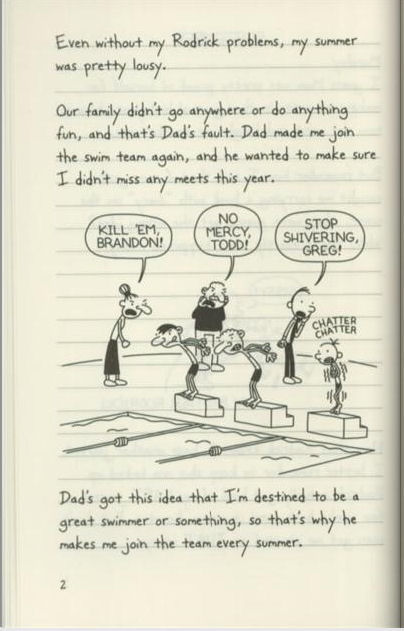 Even without my Rodrick problems, my summer
was pretty lousy.
Our family didn't go anywhere or do anything
fun, and that's Dad's fault. Dad made me join
the swim team again, and he wanted to make sure
I didn't miss any meets this year.
KILL 'EM,
BRANDON!
NO
MERCY,
TODD!
STOP
SHIVERING,
GREG!
CHATTER
CHATTER
Dad's got this idea that I'm destined to be a
great swimmer or something, so that's why he
makes me join the team every summer.
2